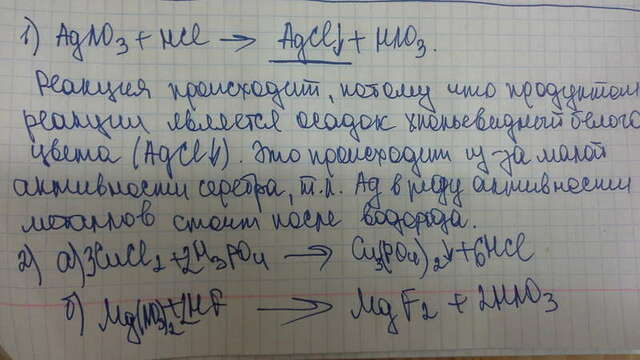 1) AgNO3 + HCl → AgCl↓ + HNO3.
Реакция происходит, потому что продуктом
реакции является осадок хлопьевидный белого
цвета (AgCl↓). Это происходит из-за малой
активности серебра, т.к. Ag в ряду активности
металлов стоит после водорода.
2) а) 3CuCl2 + 2H3PO4 → Cu3(PO4)2↓ + 6HCl
б) Mg(NO3)2 + 2HF → MgF2 + 2HNO3